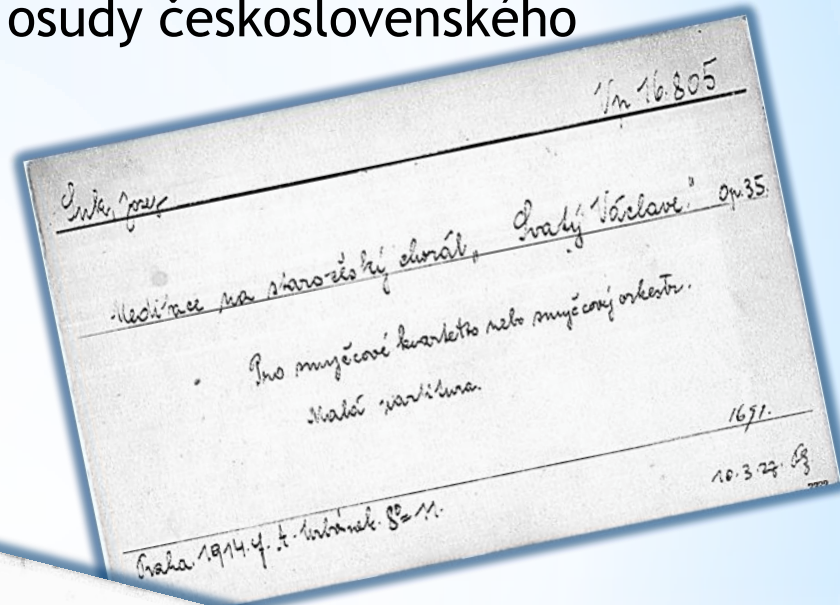 osudy československého
Vp 16.805
Suk, Josef
Meditace na staročeský chorál „Svatý Václave." Op. 35.
Pro smyčcové kvartetto nebo smyčcový orkestr.
Malá partitura.
1691.
Praha. 1914. F. A. Urbánek. 8° = 11.
10.3.27.